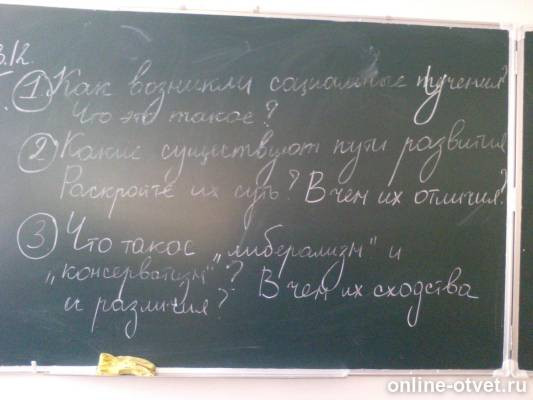 3.12.
① Как возникли социальные учения?
Что это такое?
② Какие существуют пути развития
Раскройте их суть? В чем их отличия?
③ Что такое „либерализм" и
„консерватизм"? В чем их сходства
и различия?
online-otvet.ru